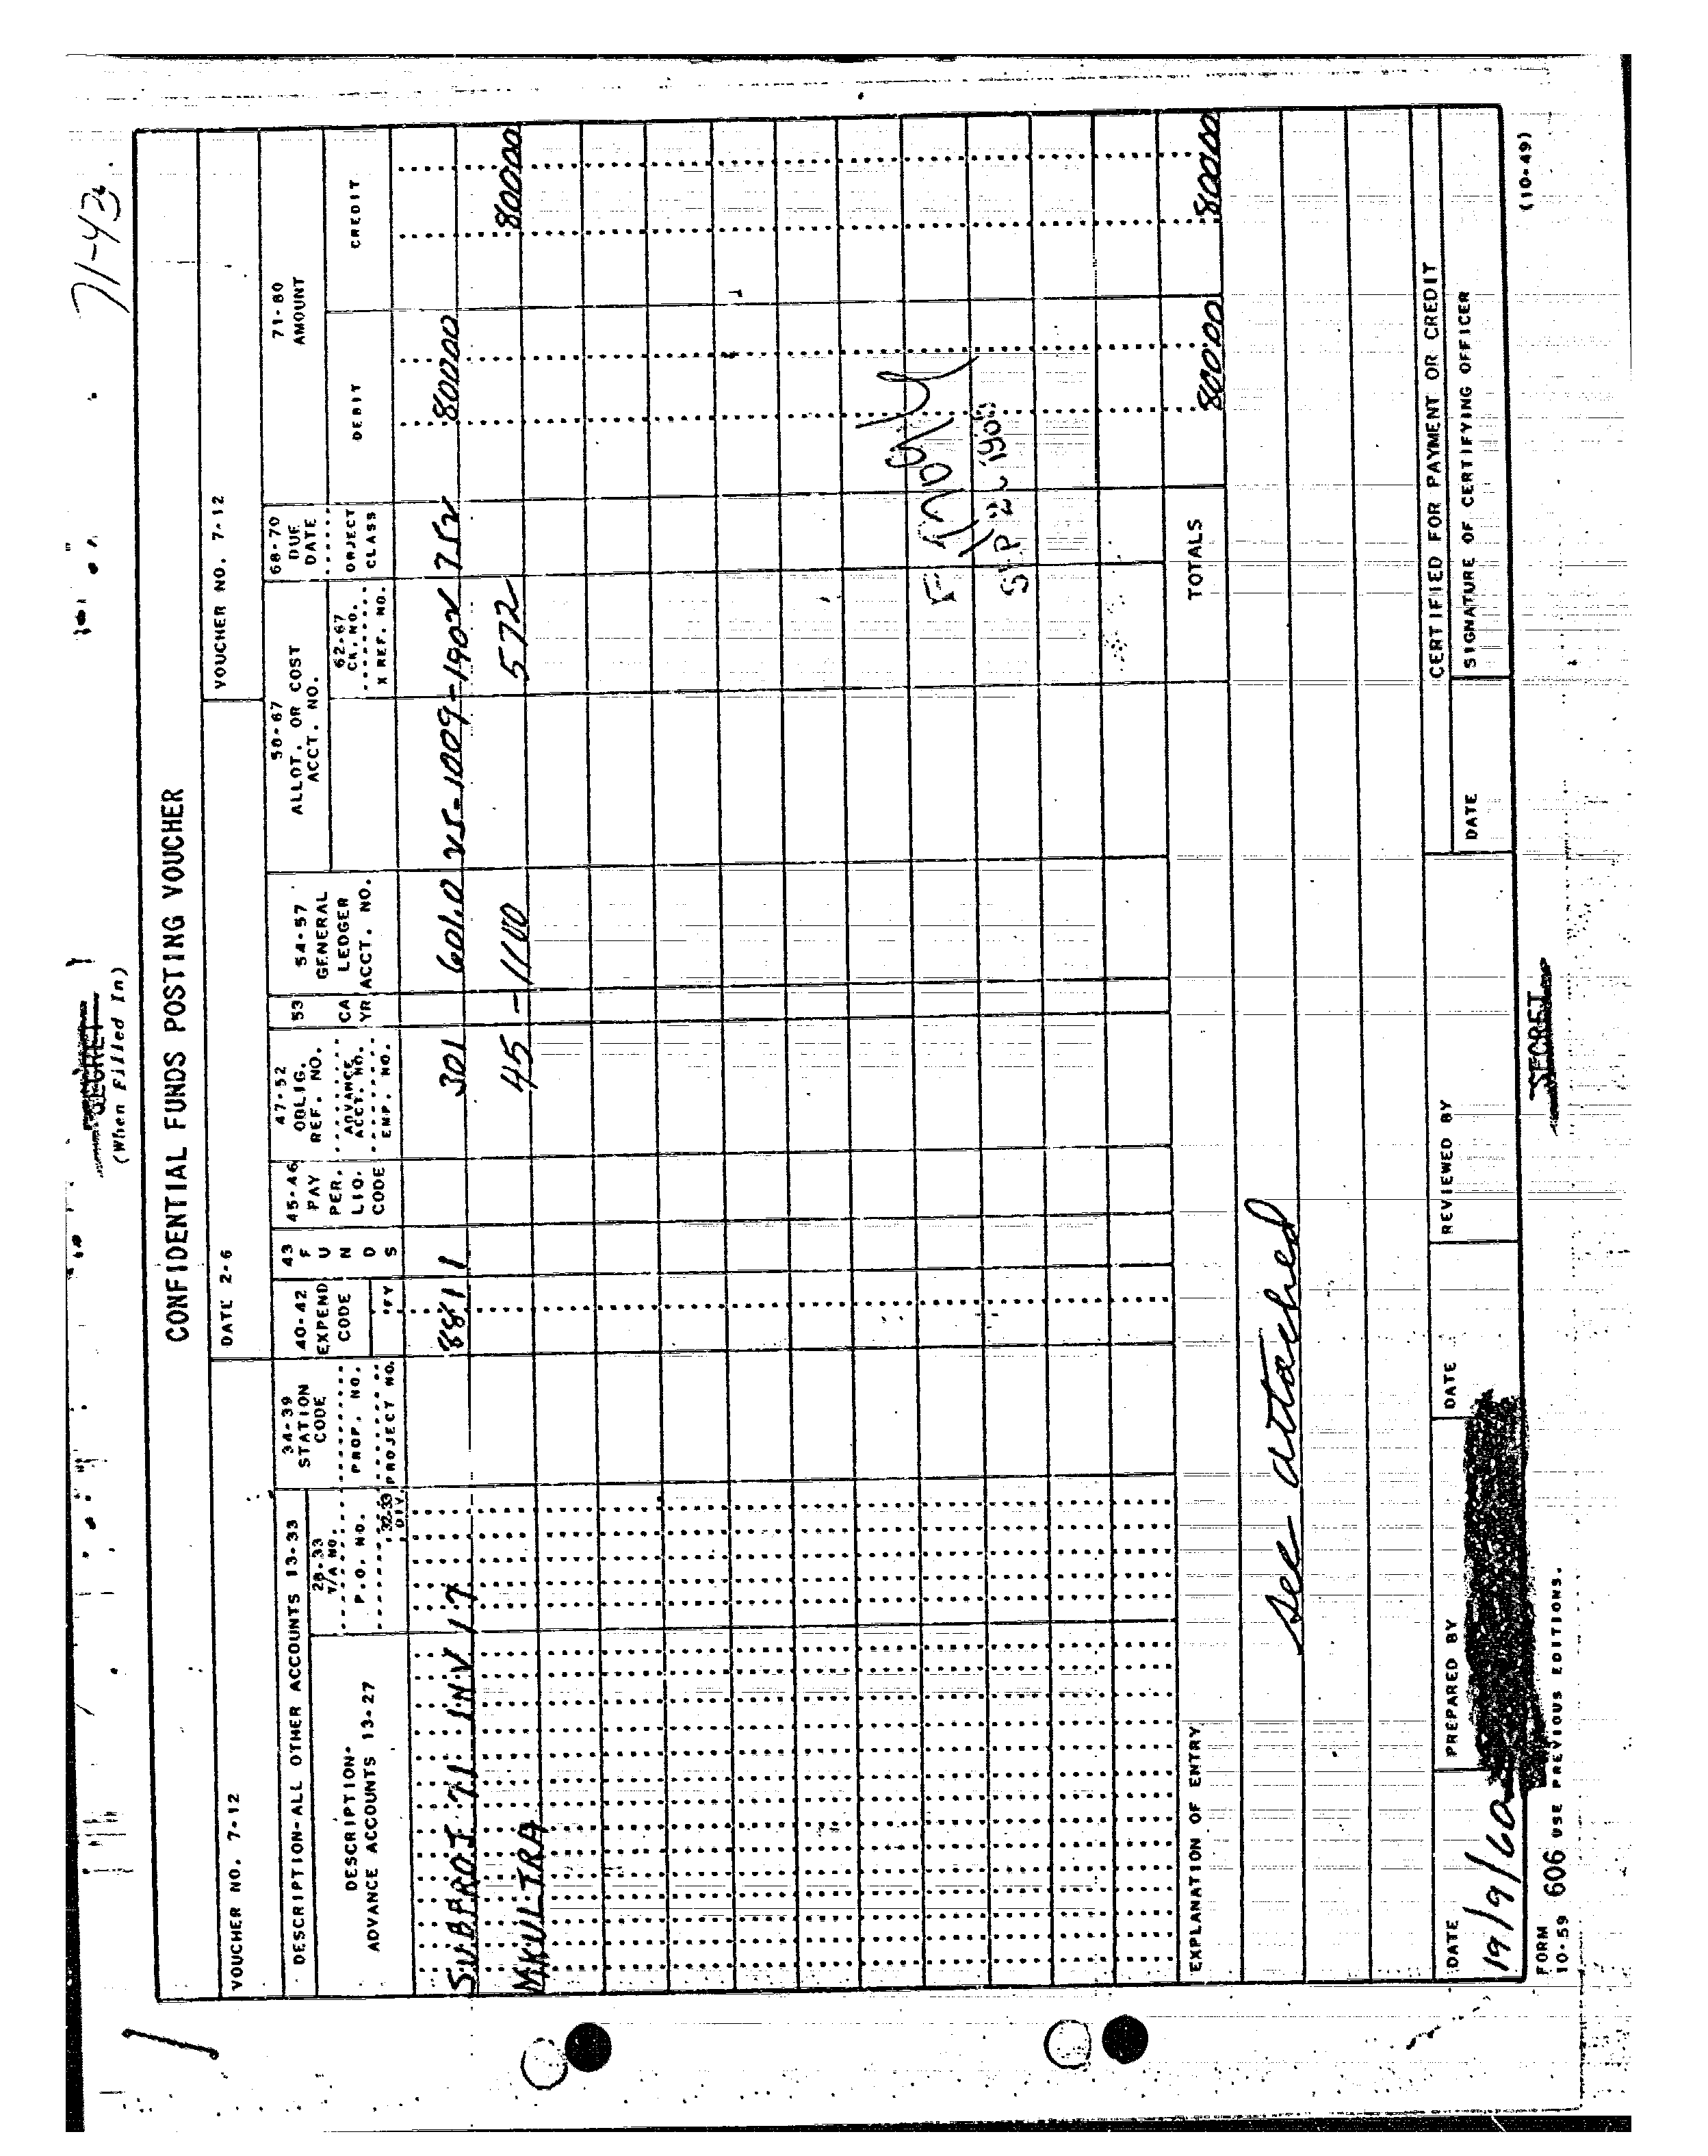 71-43
SECRET
(When Filled In)
CONFIDENTIAL FUNDS POSTING VOUCHER
VOUCHER NO. 7-12
DATE 2-6
VOUCHER NO. 7-12
DESCRIPTION-ALL OTHER ACCOUNTS 13-33
DESCRIPTION-
ADVANCE ACCOUNTS 13-27
28-33
T/A NO.
P.O. NO.
32-33
DIV.
34-39
STATION
CODE
PROP. NO.
PROJECT NO.
40-42
EXPEND
CODE
FY
43
F
U
N
D
S
45-46
PAY
PER.
LIQ.
CODE
47-52
OBLIG.
REF. NO.
ADVANCE
ACCT. NO.
EMP. NO.
53
CA
YR
54-57
GENERAL
LEDGER
ACCT. NO.
58-67
ALLOT. OR COST
ACCT. NO.
62-67
CK. NO.
X REF. NO.
68-70
DUE
DATE
OBJECT
CLASS
71-80
AMOUNT
DEBIT
CREDIT
SUBPROJ 71 INV 17 881 1 301 601.0 25-1009-1902 752 80000
MKULTRA 45 -1100 572 80000
TOTALS 80000 80000
EXPLANATION OF ENTRY
see attached
CERTIFIED FOR PAYMENT OR CREDIT
DATE
PREPARED BY
DATE
REVIEWED BY
DATE
SIGNATURE OF CERTIFYING OFFICER
19/9/60
FORM
10-59 606 USE PREVIOUS EDITIONS.
SECRET
(10-49)